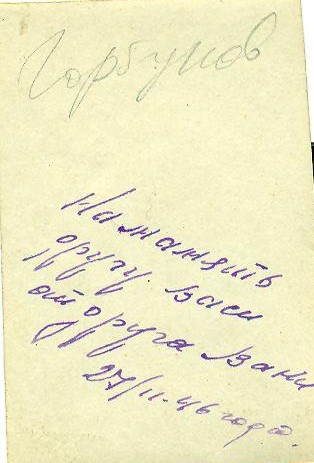 Горбунов
На память
другу Васи
от друга Вани
27/II-46 года.